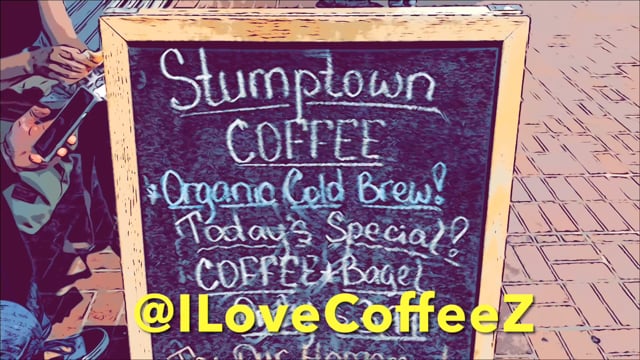 Stumptown
COFFEE
*Organic Cold Brew!
Today's Special!
COFFEE+Bagel
@ILoveCoffeeZ
Our